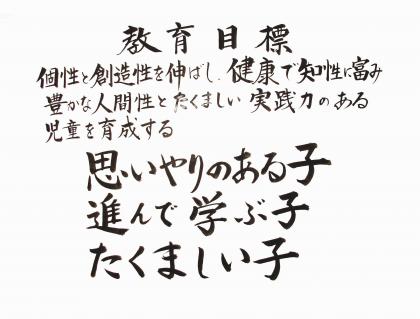 教育目標
個性と創造性を伸ばし、健康で知性に富み
豊かな人間性とたくましい実践力のある
児童を育成する
思いやりのある子
進んで学ぶ子
たくましい子